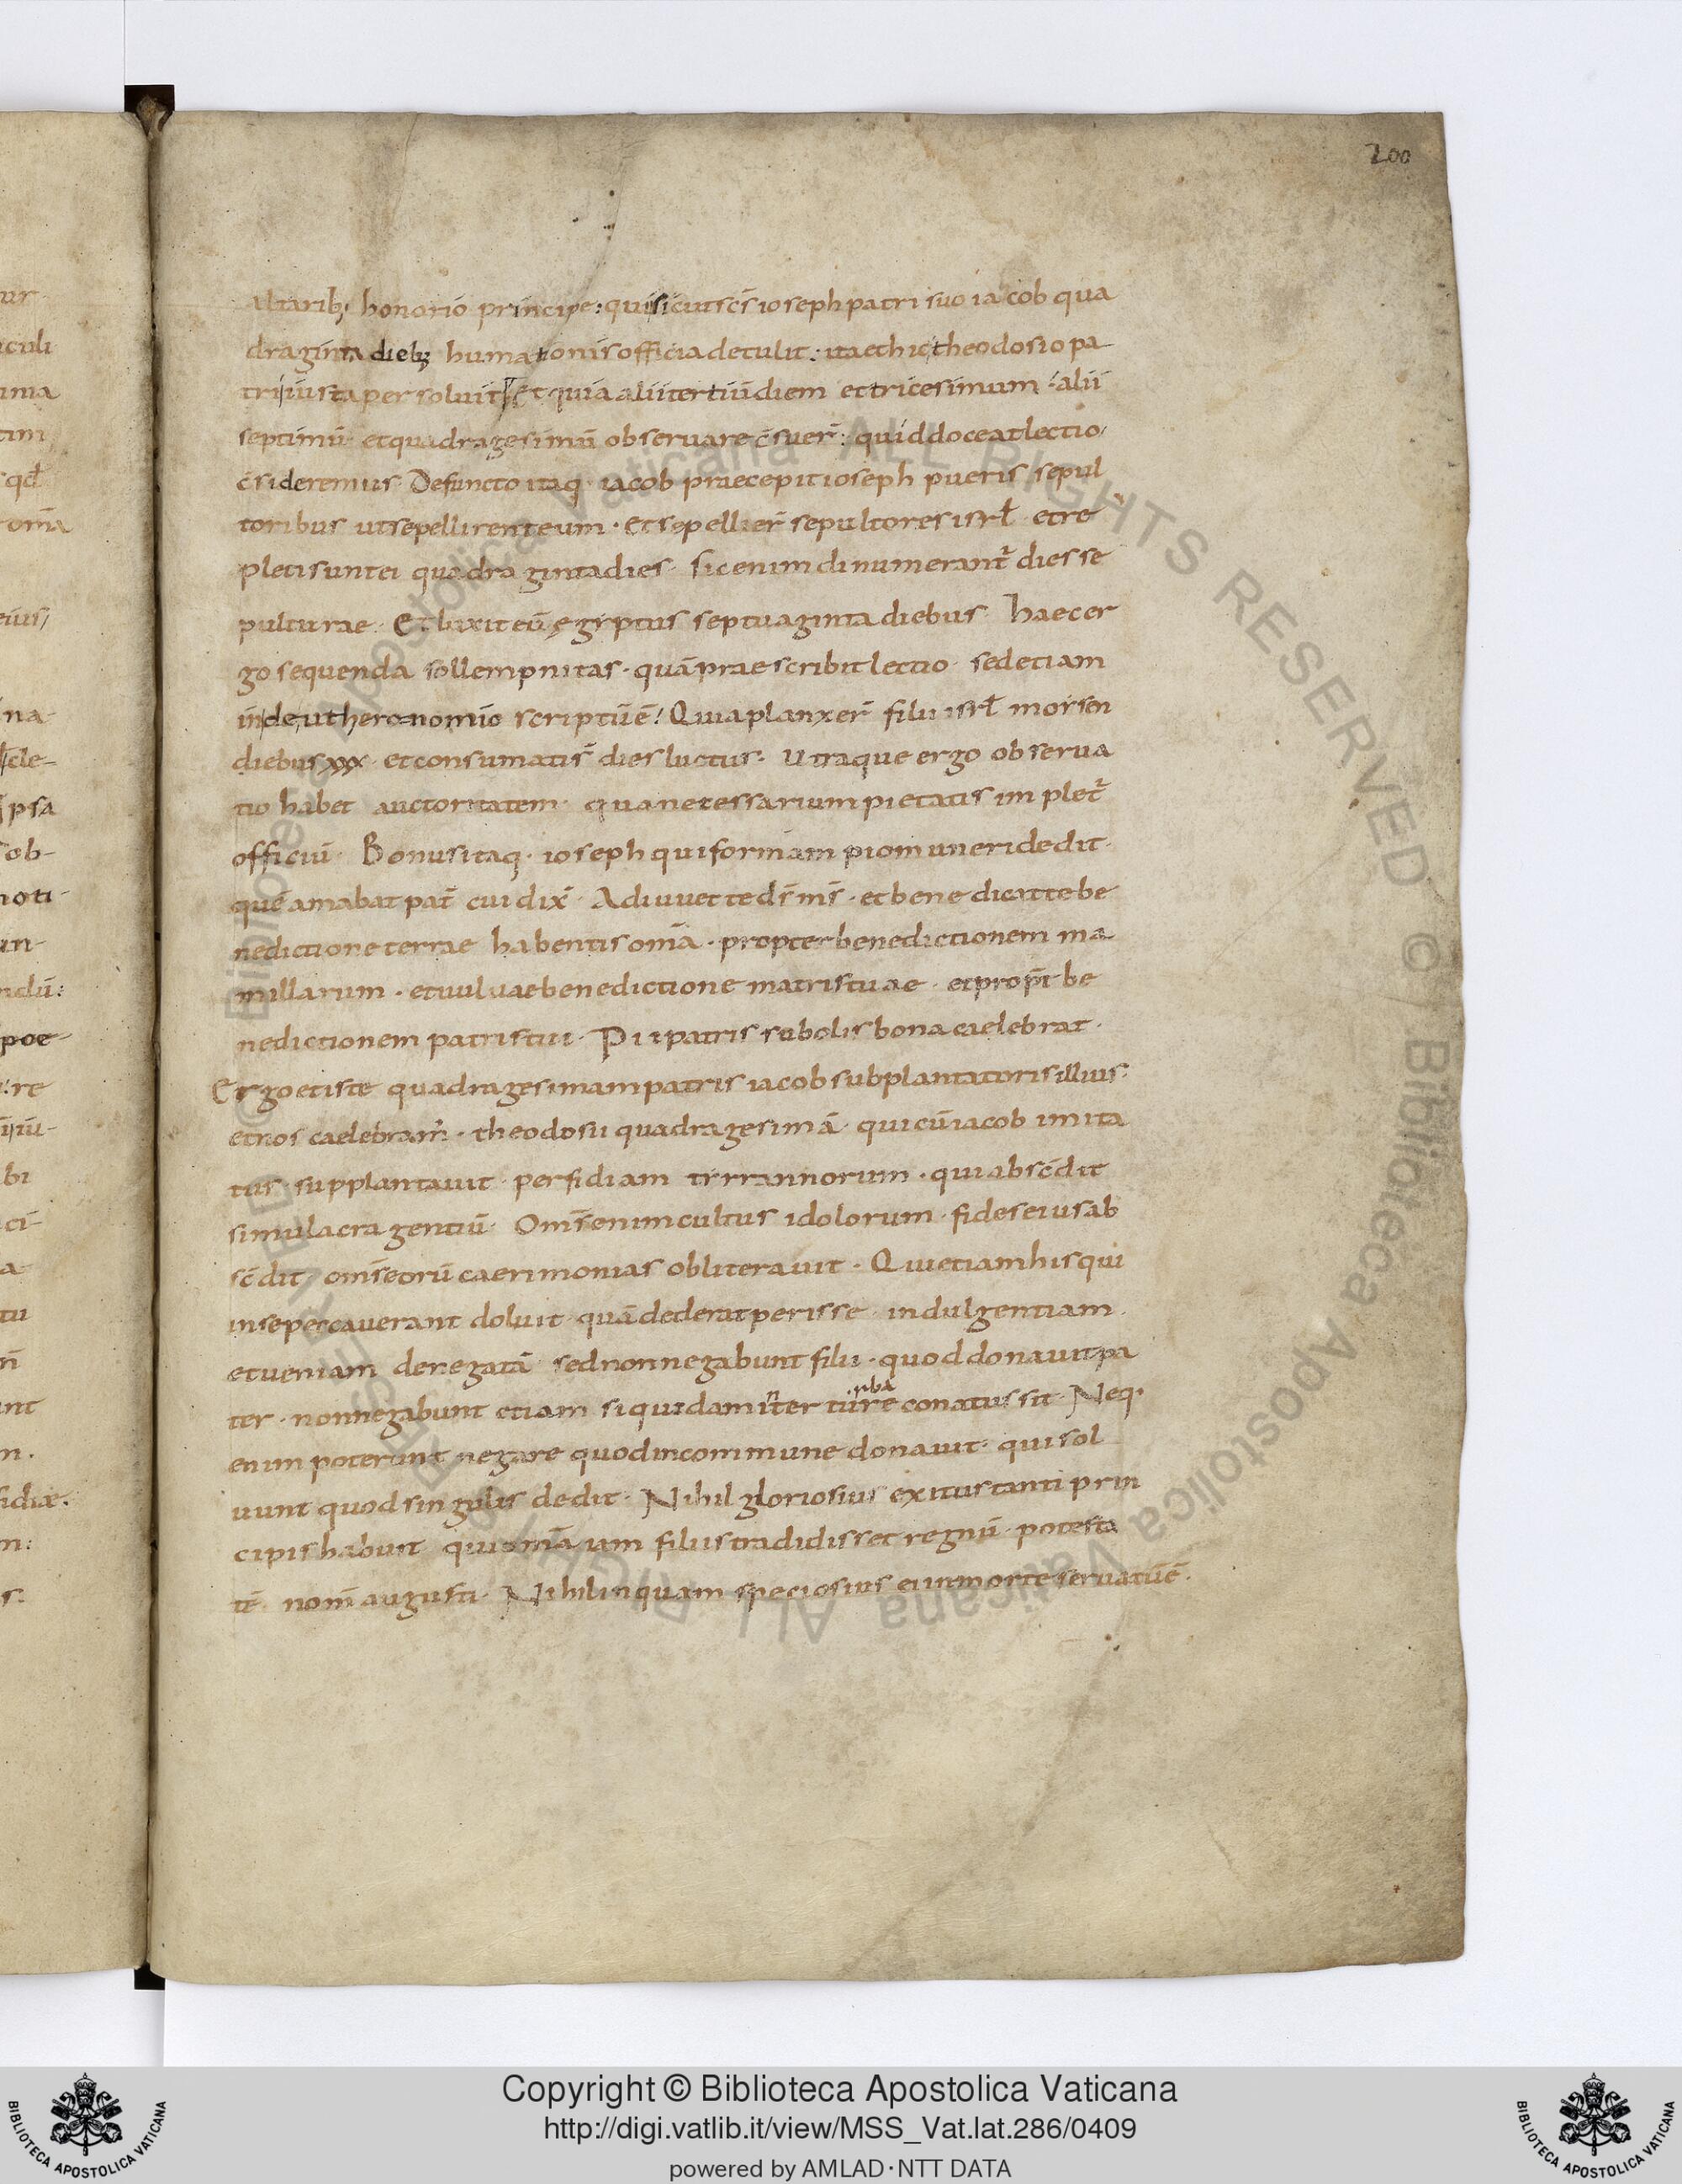 200
altarib; honorio principe: qui sicut sc̄s ioseph patri suo iacob qua
draginta dieb; humationis officia detulit: ita et hic theodosio pa
tri iusta persoluit Et quia alii tertiū diem et tricesimum alii
septimū et quadragesimū obseruare c̄suer̄: quid doceat lectio
c̄sideremus Defuncto itaq· iacob praecepit ioseph pueris sepul
toribus ut sepellirent eum · et sepellier̄ sepultores isrł et re
pleti sunt ei quadraginta dies · sic enim dinumerant̄ dies se
pulturae · Et luxit eū ęgyptus septuaginta diebus · haec er
go sequenda sollempnitas · quā praescribit lectio · sed etiam
in deutheronomio scriptū ē! Quia planxer̄ filii isrł moisen
diebus xxx et consumatis̄ dies luctus · Utraque ergo obserua
tio habet auctoritatem · qua necessarium pietatis implet̄
officiū · Bonus itaq· ioseph qui formam pio muneri dedit ·
quē amabat pat̄ cui dix̄ · Adiuuet te ds̄ ms̄ · et benedicat te be
nedictione terrae habentis om̄a · propter benedictionem ma
millarum · et uuluae benedictione matris tuae · et prop̄t be
nedictionem patris tui · Pii patris subolis bona caelebrat ·
Ergo et iste quadragesimam patris iacob subplantatoris illius
et nos caelebram̄ · theodosii quadragesimā · qui cū iacob imita
tus · supplantauit · perfidiam tyrrannorum · qui absc̄dit
simulacra gentiū · Om̄s enim cultus idolorum · fides eius ab
sc̄dit om̄s eorū caerimonias obliterauit · Qui etiam his qui
in se peccauerant doluit · quā dederat perisse · indulgentiam
et ueniam denegatā · sed non negabunt filii · quod donauit pa
ter · non negabunt etiam si quidam inter turbare conatus sit · Neq·
enim poterunt negare quod in commune donauit · qui sol
uunt quod singulis dedit · Nihil gloriosius exitus tanti prin
cipis habuit qui om̄a iam filiis tradidisset regnū · potesta
tē · nom̄ augusti · Nihil inquam speciosius ei in morte seruatū ē ·
Copyright © Biblioteca Apostolica Vaticana
http://digi.vatlib.it/view/MSS_Vat.lat.286/0409
powered by AMLAD·NTT DATA
BIBLIOTECA APOSTOLICA VATICANA
BIBLIOTECA APOSTOLICA VATICANA